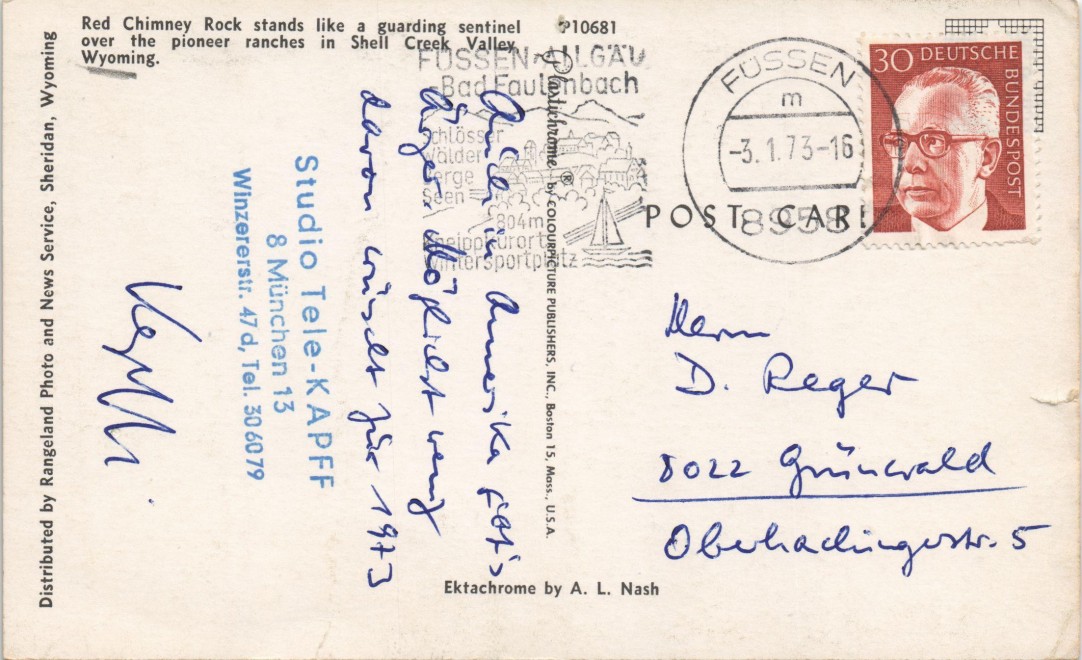 Red Chimney Rock stands like a guarding sentinel
over the pioneer ranches in Shell Creek Valley,
Wyoming.
P10681
Distributed by Rangeland Photo and News Service, Sheridan, Wyoming
FÜSSEN-ALLGÄU
Bad Faulenbach
Schlösser
Wälder
Berge
Seen
804m
Kneippkurort
Wintersportplatz
FÜSSEN
m
-3.1.73-16
8958
30 DEUTSCHE
BUNDESPOST
POST CARD
Plastichrome ® by COLOURPICTURE PUBLISHERS, INC., Boston 15, Mass., U.S.A.
Auch in Amerika gibt's
Ärger. Möglichst wenig
davon wünscht für 1973
Studio Tele-KAPFF
8 München 13
Winzererstr. 47d, Tel. 306079
Herrn
D. Reger
8022 Grünwald
Oberhachingerstr. 5
Ektachrome by A. L. Nash